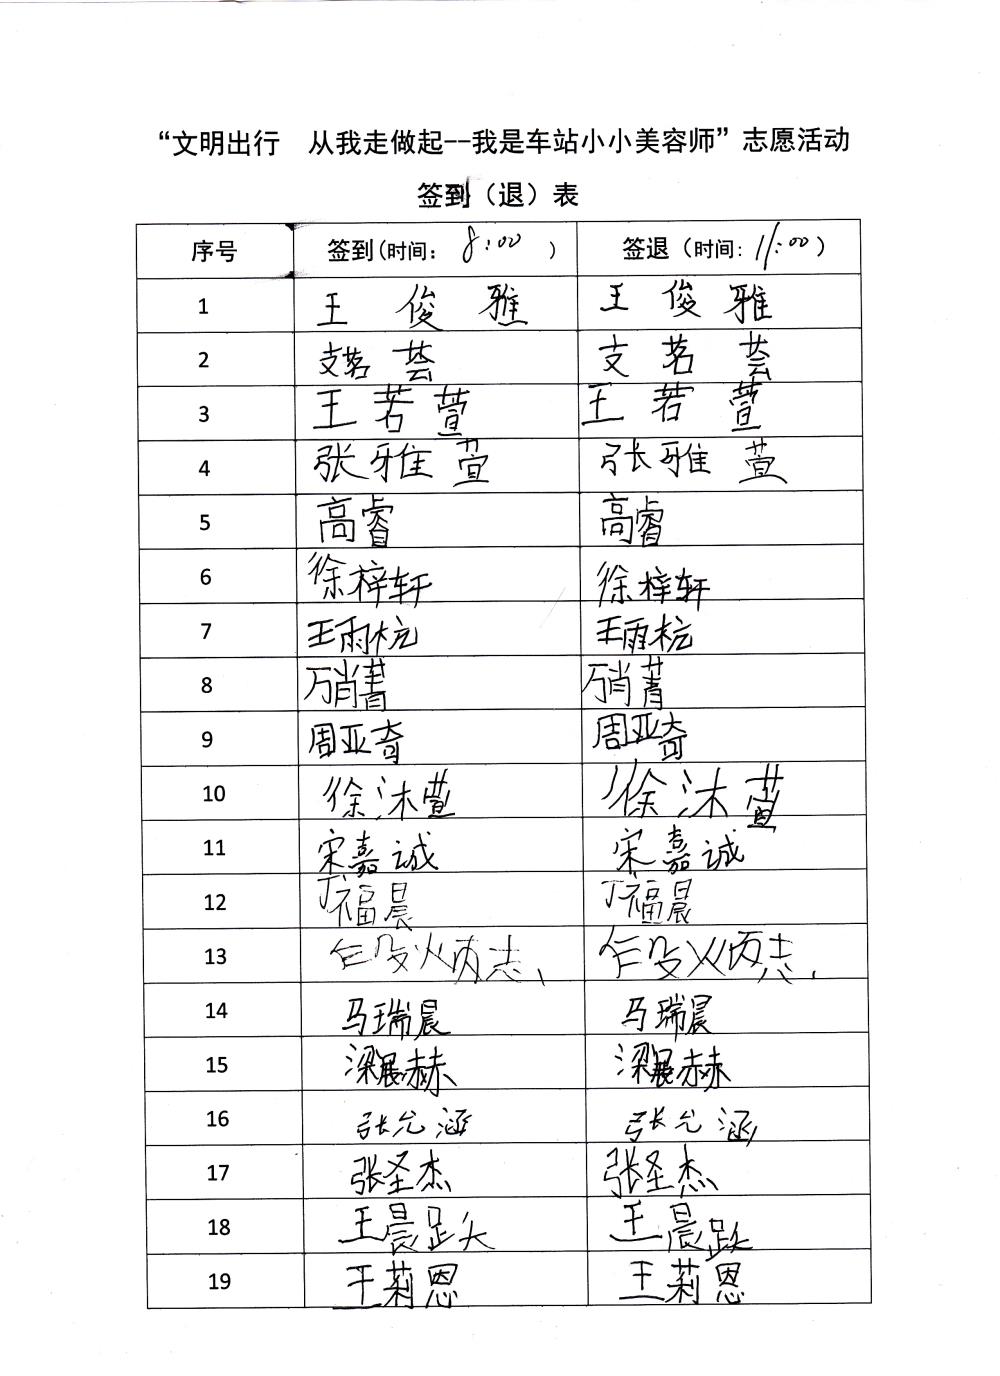 “文明出行 从我走做起--我是车站小小美容师”志愿活动
签到（退）表
序号 签到(时间： 8:00 ) 签退（时间: 11:00 )
1 王俊雅 王俊雅
2 支茗荟 支茗荟
3 王若萱 王若萱
4 张雅萱 张雅萱
5 高睿 高睿
6 徐梓轩 徐梓轩
7 王雨杭 王雨杭
8 万肖菁 万肖菁
9 周亚奇 周亚奇
10 徐沐萱 徐沐萱
11 宋嘉诚 宋嘉诚
12 丁福晨 丁福晨
13
14 马瑞晨 马瑞晨
15 梁展赫 梁展赫
16 张允涵 张允涵
17 张圣杰 张圣杰
18 王晨 王晨
19 王莉恩 王莉恩